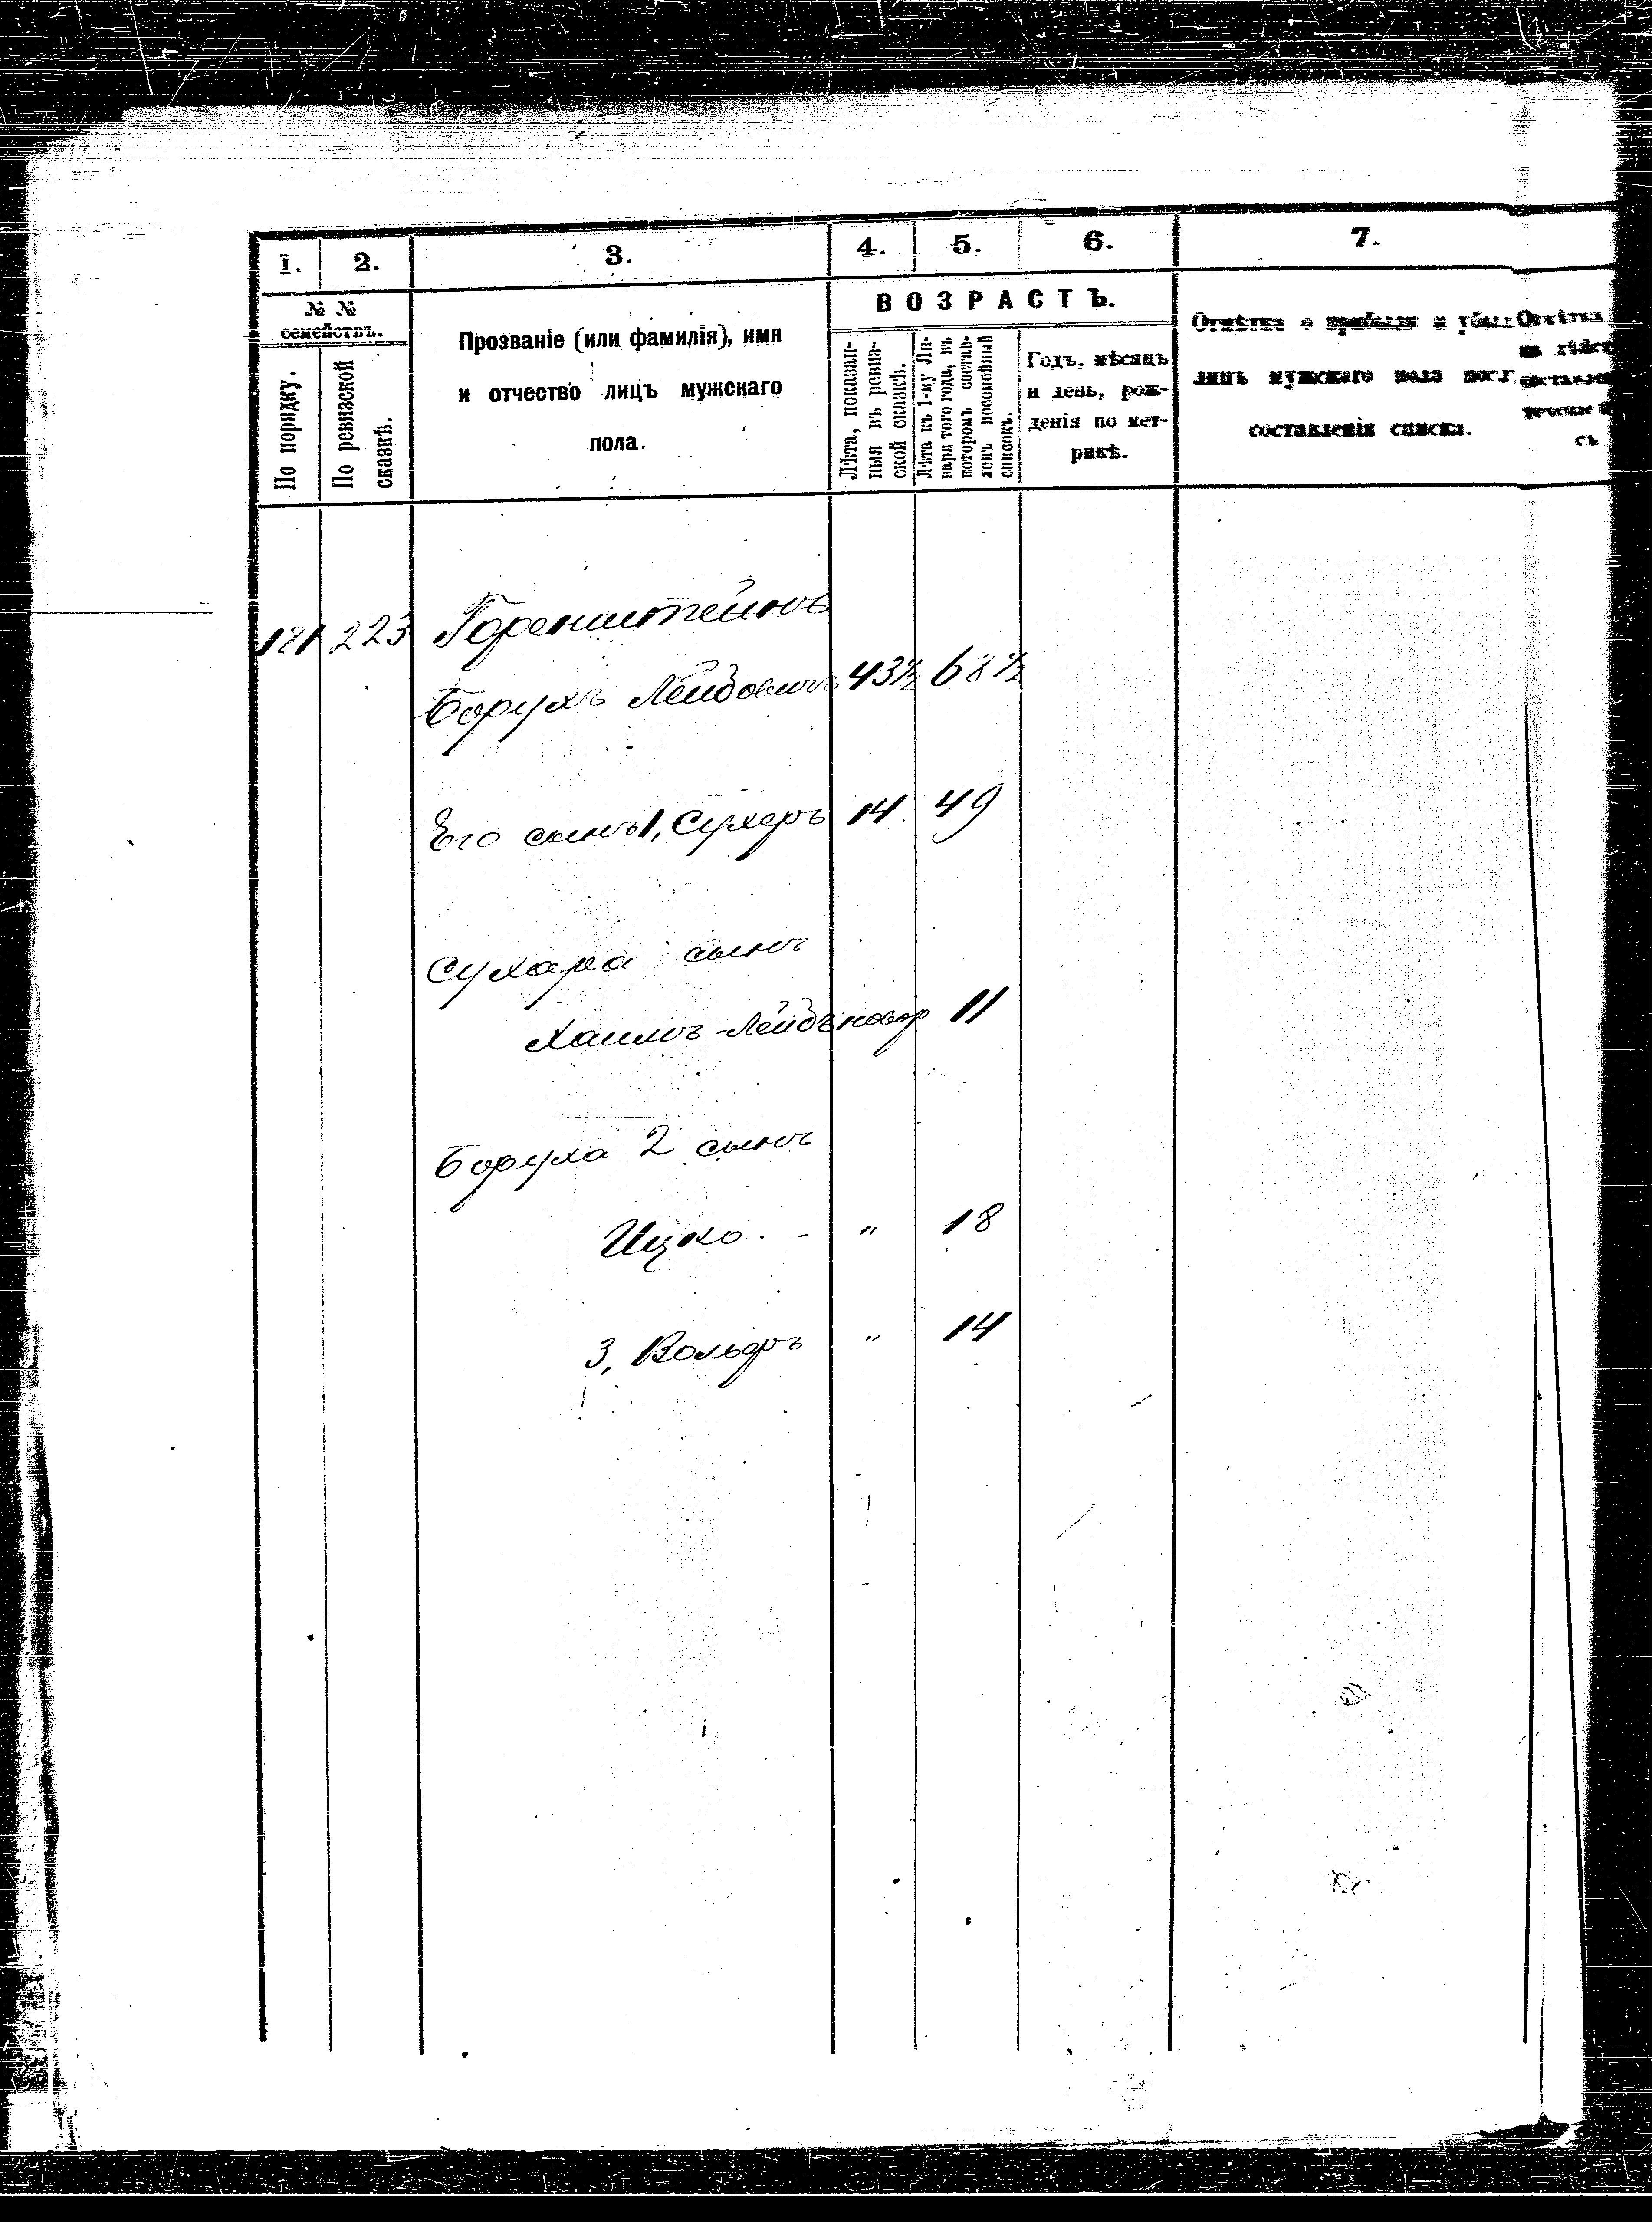 1. 2. 3. 4. 5. 6. 7.
№ №
семействъ.
По порядку.
По ревизской
сказкѣ.
Прозваніе (или фамилія), имя
и отчество лицъ мужскаго
пола.
ВОЗРАСТЪ.
Лѣта, показан-
ныя въ ревиз-
ской сказкѣ.
Лѣта къ 1-му Ян-
варя того года, въ
которомъ состав-
ленъ посемейный
списокъ.
Годъ, мѣсяцъ
и день, рож-
денія по мет-
рикѣ.
Отмѣтка о прибыли и убыл
лицъ мужскаго пола посл
составленія списка.
Отмѣтка
181 223 Горенштейнъ
Борухъ Лейбовичъ 43½ 68½
Его сынъ 1, Сухеръ 14 49
Сухара сынъ
Хаимъ-Лейбъ новор 11
Боруха 2 сынъ
Ицко - " 18
3, Вольфъ " 14